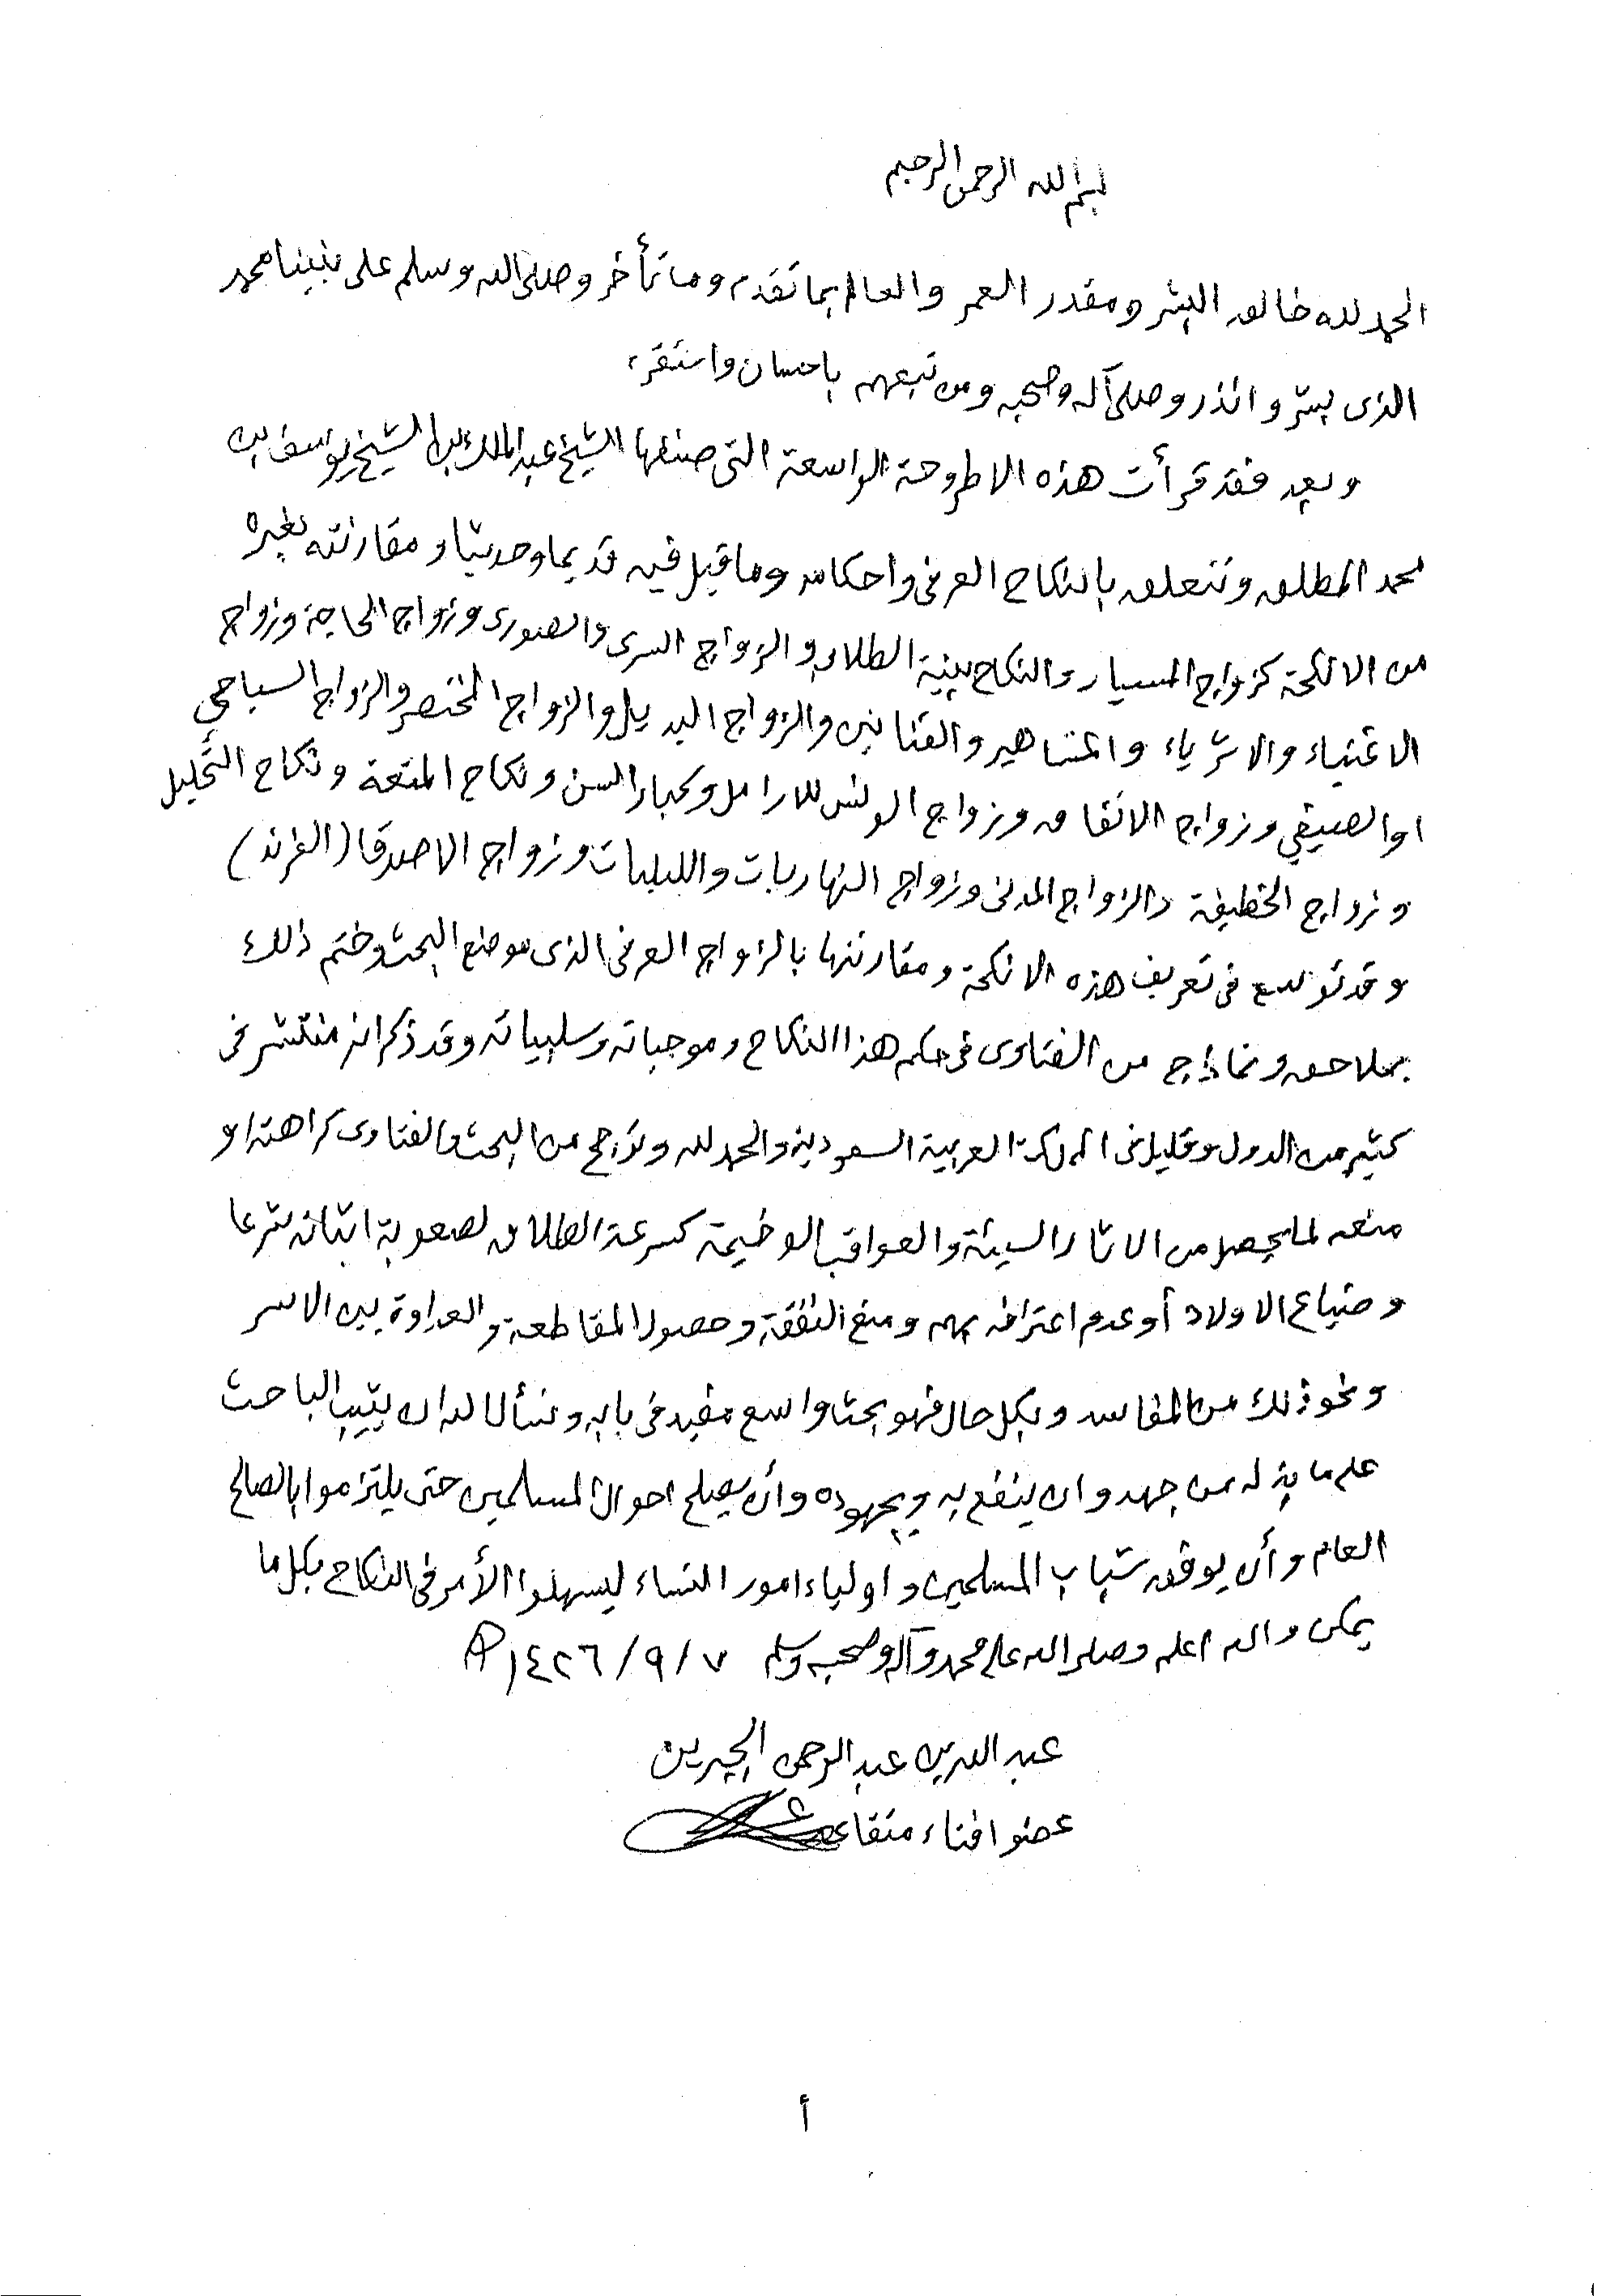 بسم الله الرحمن الرحيم
الحمد لله خالق البشر ومقدر العمر والعالم بما تقدم وما تأخر وصلى الله وسلم على نبينا محمد
الذى بشر وانذر وعلى آله وصحبه ومن تبعهم باحسان واستقر،
وبعد فقد قرأت هذه الاطروحة الواسعة التى صنفها الشيخ عبد الملك بن الشيخ يوسف بن
محمد المطلق وتتعلق بالنكاح العرفى واحكامه وما قيل فيه قديما وحديثا ومقارنته بغيره
من الانكحة كزواج المسيار والنكاح بنية الطلاق والزواج السرى والصورى وزواج الحاجة وزواج
الاغنياء والاثرياء والمشاهير والفنانين والزواج البديل والزواج المختصر والزواج السياحي
او الصيفي وزواج الاتفاق وزواج الونس للارامل وكبار السن ونكاح المتعة ونكاح التحليل
وزواج الخطيفة والزواج المدنى وزواج النهاريات والليليات وزواج الاصدقا (الفرند)
وقد توسع فى تعريف هذه الانكحة ومقارنتها بالزواج العرفى الذى موضع البحث وختم ذلك
بملاحق ونماذج من الفتاوى فى حكم هذا النكاح وموجباته وسلبياته وقد ذكر انه منتشر فى
كثير من الدول وقليل فى المملكة العربية السعودية والحمد لله وترجح من البحث والفتاوى كراهته او
منعه لما يحصل من الاثار السيئة والعواقب الوخيمة كسرعة الطلاق لصعوبة اثباته شرعا
وضياع الاولاد أو عدم اعترافه بهم ومنع النفقة وحصول المقاطعة والعداوة بين الاسر
ونحو ذلك من المفاسد وبكل حال فهو بحث واسع مفيد فى بابه ونسأل الله ان يثيب الباحث
على ما بذله من جهد وان ينفع به وبمجهوده وأن يصلح احوال المسلمين حتى يلتزموا بالصالح
العام وأن يوفق شباب المسلمين واولياء امور النساء ليسهلوا الأمر فى النكاح بكل ما
يمكن والله اعلم وصلى الله على محمد وآله وصحبه وسلم ٧ / ٩ / ١٤٢٦ هـ
عبد الله بن عبد الرحمن الجبرين
عضو افتاء متقاعد
أ